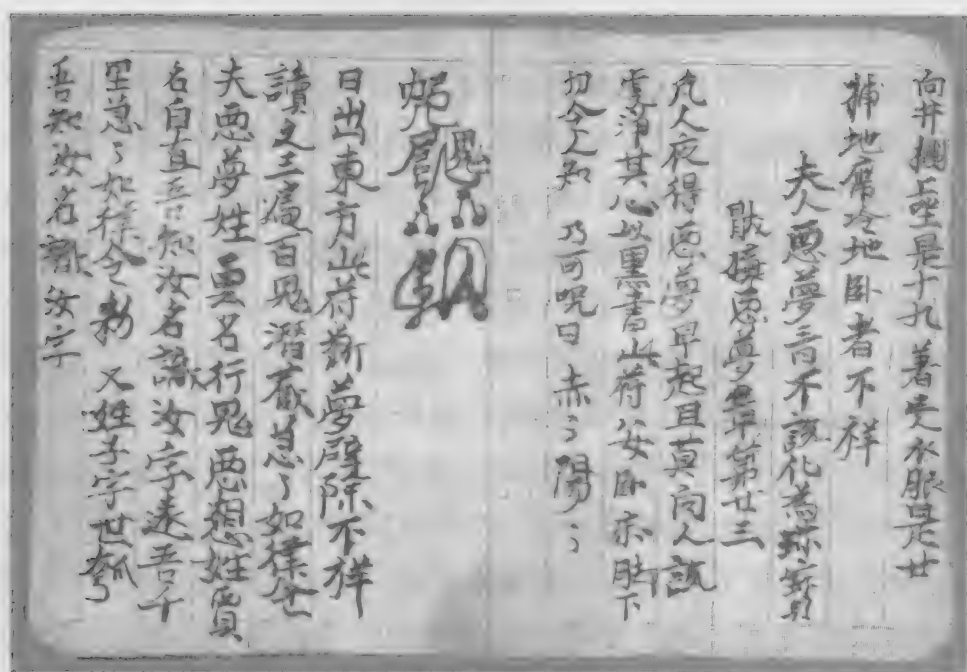 向井攔上坐是十九著史衣服是廿
捕地席冷地卧者不祥
夫人惡夢三言不說化為珠寳
猒攘惡夢章第廿三
凡人夜得惡夢早起且莫向人說
虔淨其心以黒書此符安卧床脚下
勿令人知 乃可呪曰 赤〻陽〻
日出東方此符斷夢辟除不祥
讀之三遍百鬼潜藏急〻如律令
夫惡夢姓雲名行鬼惡想姓賈
名自直吾知汝名識汝字遠吾千
里急〻如律令勑 又姓子字世瓠
吾知汝名識汝字